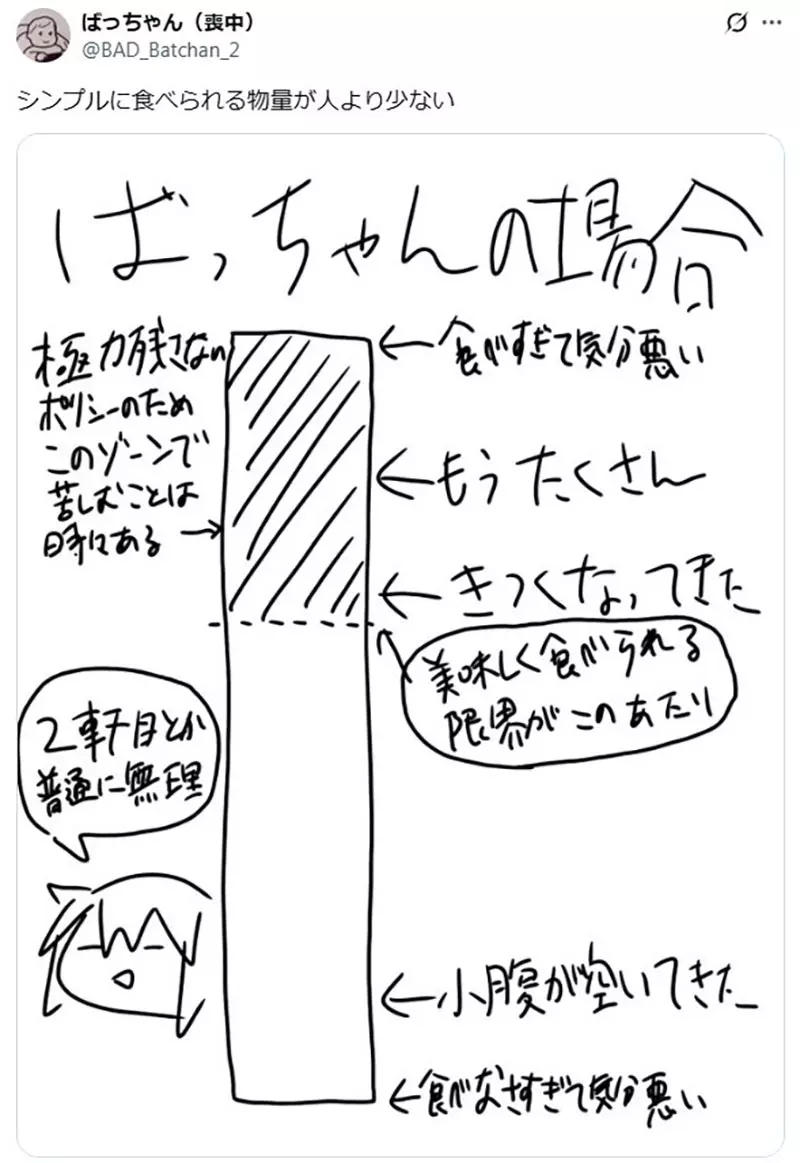 ばっちゃん（喪中）
@BAD_Batchan_2
シンプルに食べられる物量が人より少ない
ばっちゃんの場合
極力残さない
ポリシーのため
このゾーンで
苦しむことは
時々ある
←食べすぎて気分悪い
←もうたくさん
←きつくなってきた
美味しく食べられる
限界がこのあたり
2軒目とか
普通に無理
←小腹が空いてきた
←食べなさすぎて気分悪い